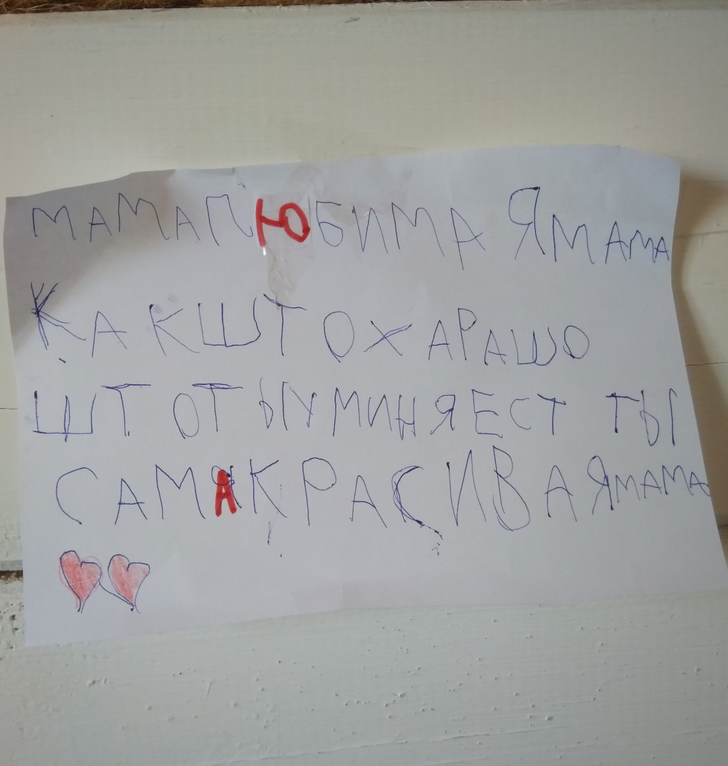 МАМАПЮБИМА ЯМАМА
КАКШТ ОХАРАШО
ШТ ОТЫУМИНЯЕСТ ТЫ
САМАКРАСИВАЯМАМА